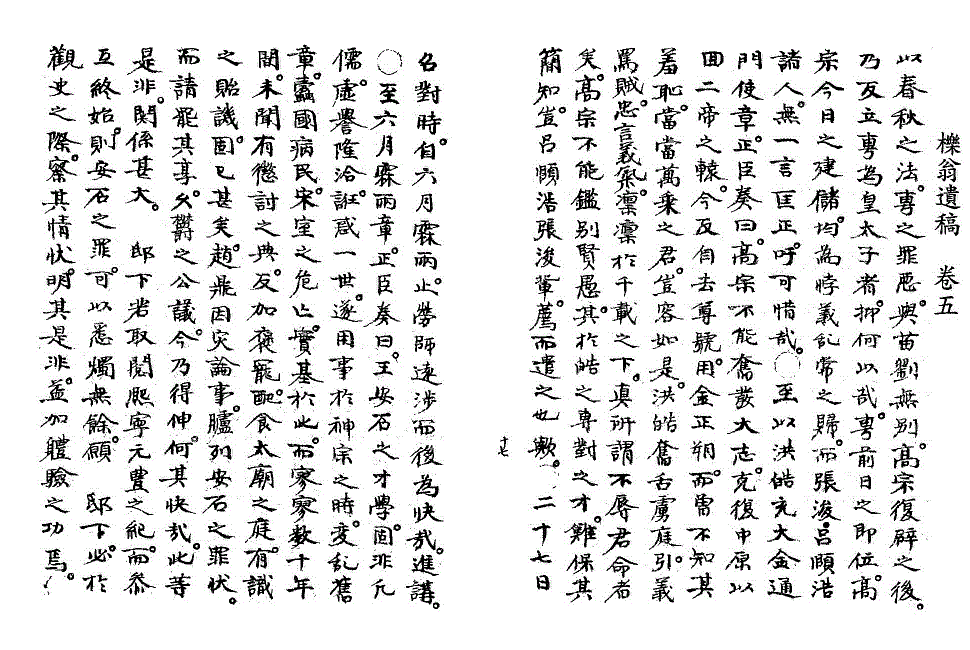 櫟翁遺稿 卷五
以春秋之法。專之罪惡。與苗劉無別。高宗復辟之後。
乃反立專為皇太子者。抑何以哉。專前日之即位。高
宗今日之建儲。均為悖義亂常之歸。而張浚呂頤浩
諸人。無一言匡正。吁可惜哉。○至以洪皓充大金通
問使章。正臣奏曰。高宗不能奮發大志。克復中原。以
回二帝之轅。今反自去尊號。用金正朔。而曾不知其
羞恥。當當萬乘之君。豈容如是。洪皓奮舌虜庭。引義
罵賊。忠言義氣。凜凜於千載之下。眞所謂不辱君命者
矣。高宗不能鑑別賢愚。其於皓之專對之才。難保其
簡知。豈呂頤浩張浚輩。薦而遣之也歟。 二十七日
十七
名對時。自六月霖雨止。勞師遠涉而後為快哉。進講。
○至六月霖雨章。正臣奏曰。王安石之才學。固非凡
儒。虛譽隆洽。誑惑一世。遂用事於神宗之時。變亂舊
章。蠹國病民。宋室之危亡。實基於此。而寥寥數十年
間。未聞有懲討之典。反加褒寵。配食太廟之庭。有識
之貽譏。固已甚矣。趙鼎因灾論事。臚列安石之罪狀。
而請罷其享。久欝之公議。今乃得伸。何其快哉。此等
是非。關係甚大。 邸下若取閱熙寧元豊之紀。而參
互終始。則安石之罪。可以悉燭無餘。願 邸下。必於
觀史之際。察其情狀。明其是非。益加體驗之功焉。